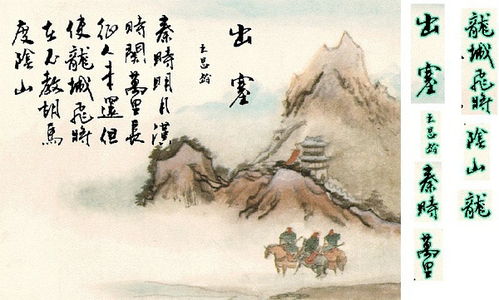 出塞
王昌齡
秦時明月漢
時関萬里長
征人未還但
使龍城飛將
在不教胡馬
度陰山
出塞
王昌齡
秦時
萬里
龍城飛將
陰山
龍